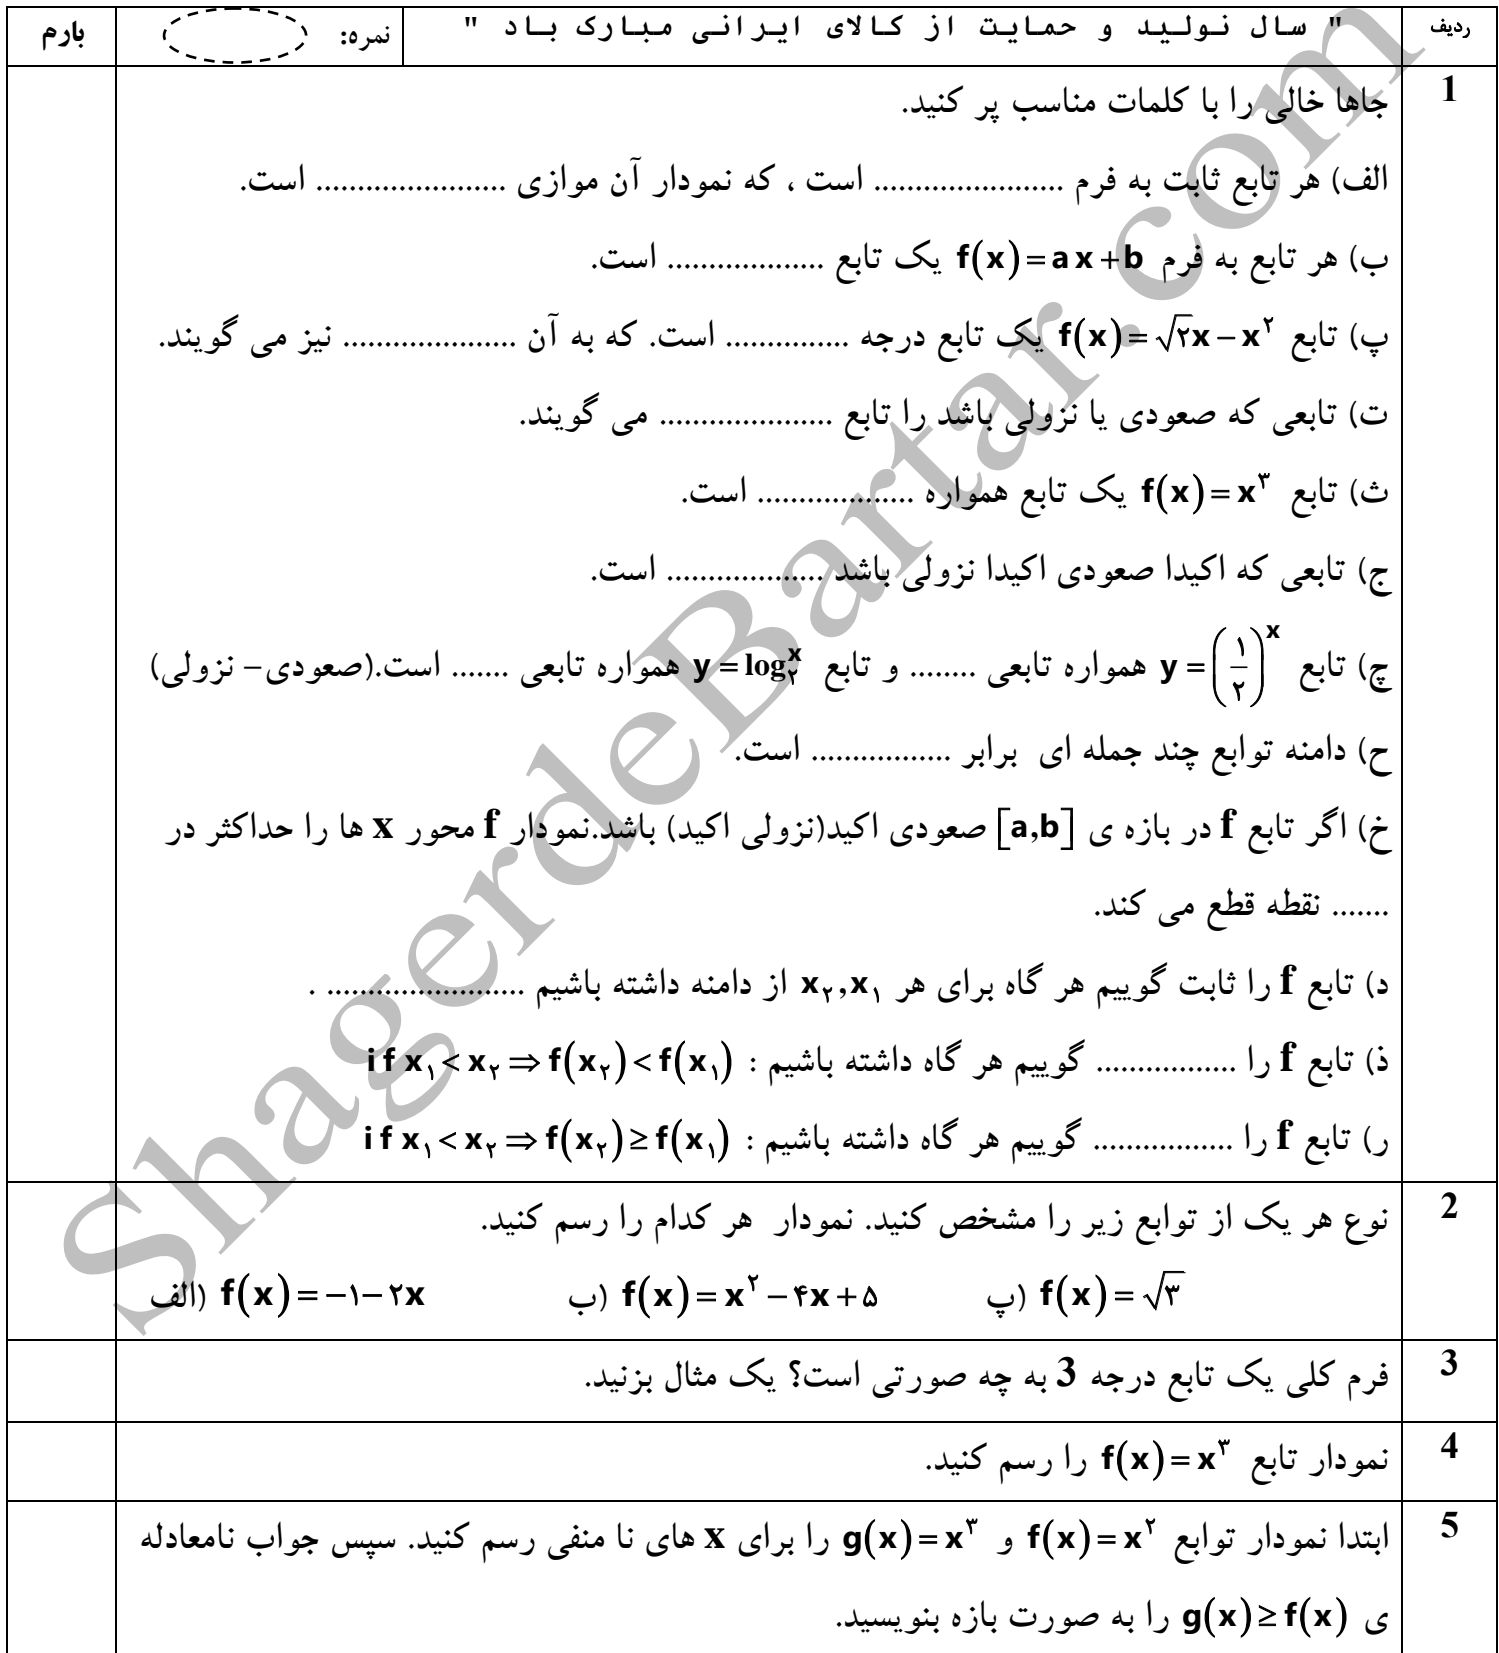 ردیف " سال تولید و حمایت از کالای ایرانی مبارک باد " نمره: بارم
1 جاها خالی را با کلمات مناسب پر کنید.
الف) هر تابع ثابت به فرم ....................... است ، که نمودار آن موازی ....................... است.
ب) هر تابع به فرم f(x)=ax+b یک تابع ................... است.
پ) تابع f(x)=√۲x−x^۲ یک تابع درجه ............... است. که به آن ..................... نیز می گویند.
ت) تابعی که صعودی یا نزولی باشد را تابع ..................... می گویند.
ث) تابع f(x)=x^۳ یک تابع همواره ................... است.
ج) تابعی که اکیدا صعودی اکیدا نزولی باشد ................... است.
چ) تابع y=(۱/۲)^x همواره تابعی ........ و تابع y=log_۲^x همواره تابعی ....... است.(صعودی- نزولی)
ح) دامنه توابع چند جمله ای برابر ................. است.
خ) اگر تابع f در بازه ی [a,b] صعودی اکید(نزولی اکید) باشد.نمودار f محور x ها را حداکثر در
....... نقطه قطع می کند.
د) تابع f را ثابت گوییم هر گاه برای هر x₂,x₁ از دامنه داشته باشیم ........................ .
ذ) تابع f را ................. گوییم هر گاه داشته باشیم : if x₁<x₂⇒f(x₂)<f(x₁)
ر) تابع f را ................. گوییم هر گاه داشته باشیم : if x₁<x₂⇒f(x₂)≥f(x₁)
2 نوع هر یک از توابع زیر را مشخص کنید. نمودار هر کدام را رسم کنید.
الف) f(x)=−۱−۲x ب) f(x)=x^۲−۴x+۵ پ) f(x)=√۳
3 فرم کلی یک تابع درجه 3 به چه صورتی است؟ یک مثال بزنید.
4 نمودار تابع f(x)=x^۳ را رسم کنید.
5 ابتدا نمودار توابع f(x)=x^۲ و g(x)=x^۳ را برای x های نا منفی رسم کنید. سپس جواب نامعادله
ی g(x)≥f(x) را به صورت بازه بنویسید.
ShagerdeBartar.com